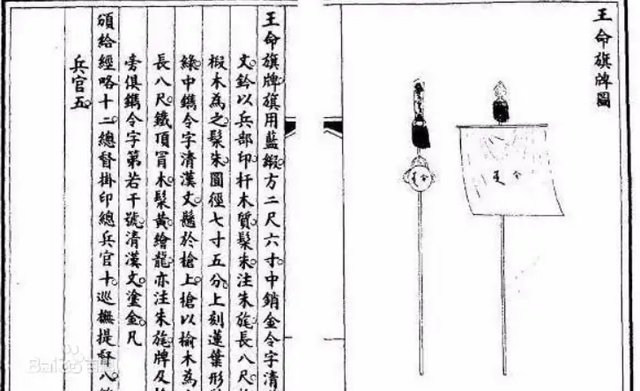 王命旗牌圖
令
令
王命旗牌旗用藍緞方二尺六寸中銷金令字清
文鈐以兵部印杆木質髹朱注朱旄長八尺
椵木為之髹朱圓徑七寸五分上刻蓮葉形
綠中鐫令字清漢文懸於槍上槍以榆木為
長八尺鐵頂冒木髹黃繪龍亦注朱旄牌及
旁俱鐫令字第若干號清漢文塗金凡
頒給經略十二總督掛印總兵官十巡撫提督八
兵官五
Baidu百科